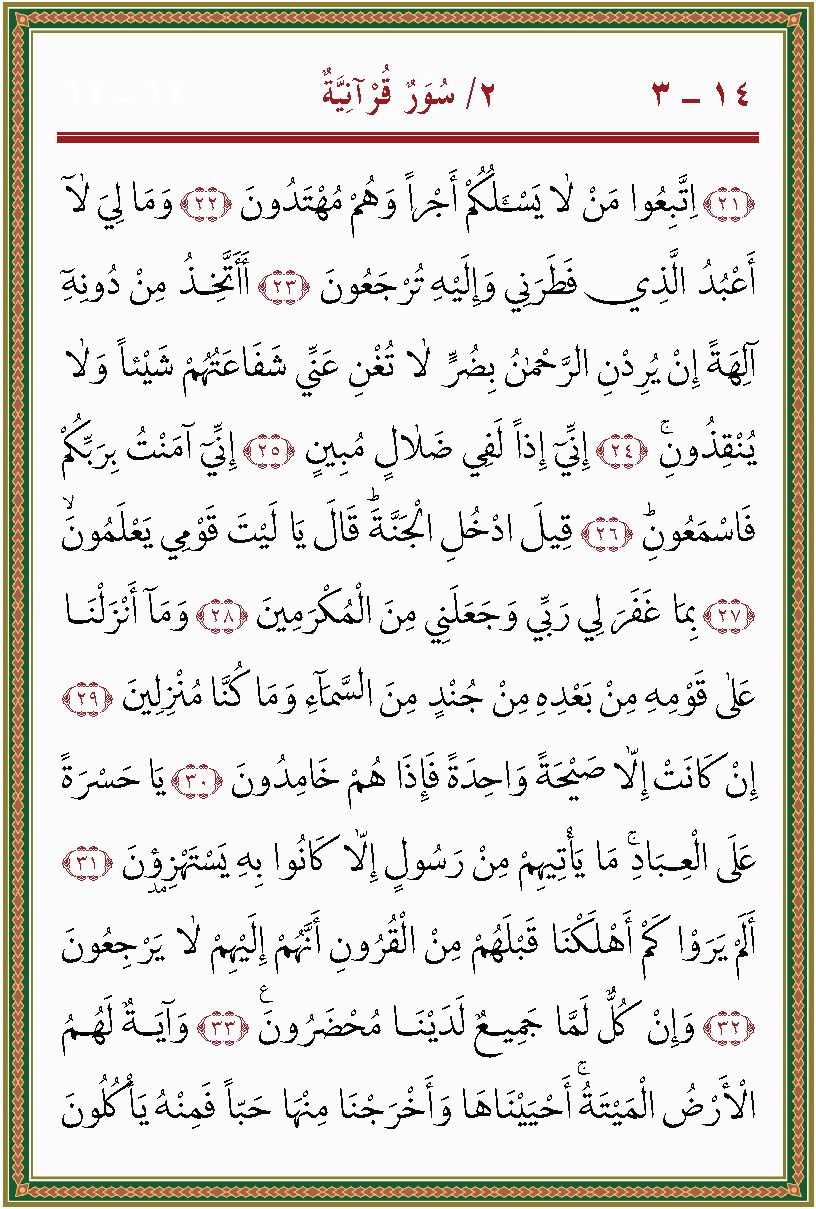 ١٤ – ٣ ٢/ سُوَرٌ قُرْآنِيَّةٌ ١٤ – ١٤
﴿٢١﴾ اِتَّبِعُوا مَنْ لَا يَسْـَٔلُكُمْ أَجْراً وَهُمْ مُهْتَدُونَ ﴿٢٢﴾ وَمَا لِيَ لَآ
أَعْبُدُ الَّذِي فَطَرَنِي وَإِلَيْهِ تُرْجَعُونَ ﴿٢٣﴾ أَأَتَّخِـذُ مِنْ دُونِهِٓ
آلِهَةً إِنْ يُرِدْنِ الرَّحْمٰنُ بِضُرٍّ لَا تُغْنِ عَنِّي شَفَاعَتُهُمْ شَيْئاً وَلَا
يُنْقِذُونِۚ ﴿٢٤﴾ إِنِّيٓ إِذاً لَفِي ضَلَالٍ مُبِينٍ ﴿٢٥﴾ إِنِّيٓ آمَنْتُ بِرَبِّكُمْ
فَاسْمَعُونِۜ ﴿٢٦﴾ قِيلَ ادْخُلِ الْجَنَّةَۜ قَالَ يَا لَيْتَ قَوْمِي يَعْلَمُونَۙ
﴿٢٧﴾ بِمَا غَفَرَ لِي رَبِّي وَجَعَلَنِي مِنَ الْمُكْرَمِينَ ﴿٢٨﴾ وَمَآ أَنْزَلْنَـا
عَلٰى قَوْمِهِ مِنْ بَعْدِهِ مِنْ جُنْدٍ مِنَ السَّمَآءِ وَمَا كُنَّا مُنْزِلِينَ ﴿٢٩﴾
إِنْ كَانَتْ إِلَّا صَيْحَةً وَاحِدَةً فَإِذَا هُمْ خَامِدُونَ ﴿٣٠﴾ يَا حَسْرَةً
عَلَى الْعِـبَادِۚ مَا يَأْتِيهِمْ مِنْ رَسُولٍ إِلَّا كَانُوا بِهِ يَسْتَهْزِؤُنَ ﴿٣١﴾
أَلَمْ يَرَوْا كَمْ أَهْلَكْنَا قَبْلَهُمْ مِنَ الْقُرُونِ أَنَّهُمْ إِلَيْهِمْ لَا يَرْجِعُونَ
﴿٣٢﴾ وَإِنْ كُلٌّ لَمَّا جَمِيـعٌ لَدَيْنَـا مُحْضَرُونَ ﴿٣٣﴾ وَآيَـةٌ لَهُـمُ
الْأَرْضُ الْمَيْتَةُۚ أَحْيَيْنَاهَا وَأَخْرَجْنَا مِنْهَا حَبّاً فَمِنْهُ يَأْكُلُونَ